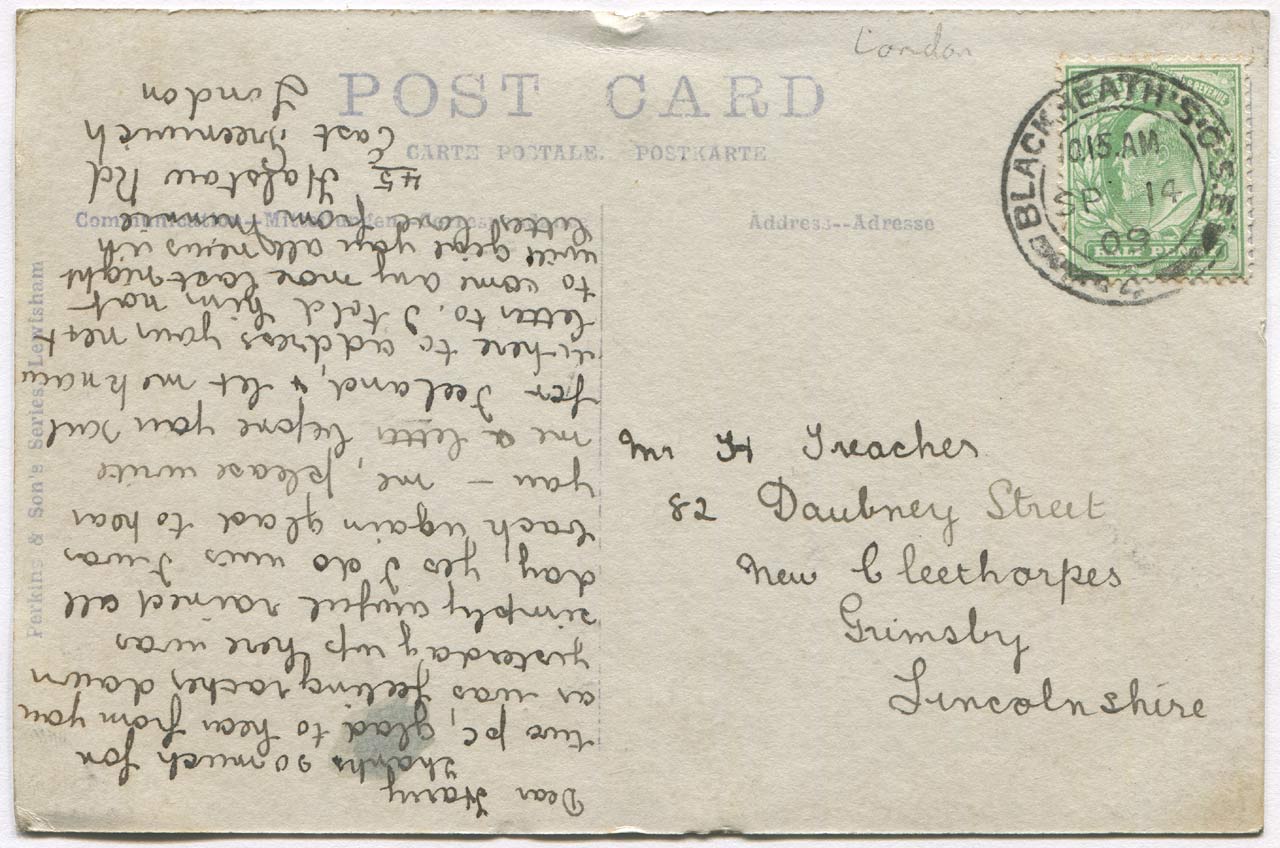 London
POST CARD
CARTE POSTALE. POSTKARTE
Address--Adresse
Perkins & Son's Series, Lewisham
BLACKHEATH.S.O.S.E.
10.15.AM
SP 14
09
HALF PENNY
Mr H Treacher
82 Daubney Street
New Cleethorpes
Grimsby
Lincolnshire
Dear Harry
Thanks so much for
two pc, glad to hear from you
as was feeling racher down
yesterday up there was
simply awful rained all
day yes I do miss I was
back again glad to hear
you – me, please write
me a letter before you sail
for Iceland, & let me know
where to address your next
letter to. I told him not
to come any more last night
will give you all news with
letter love from
45 Halstow Rd
East Greenwich
London